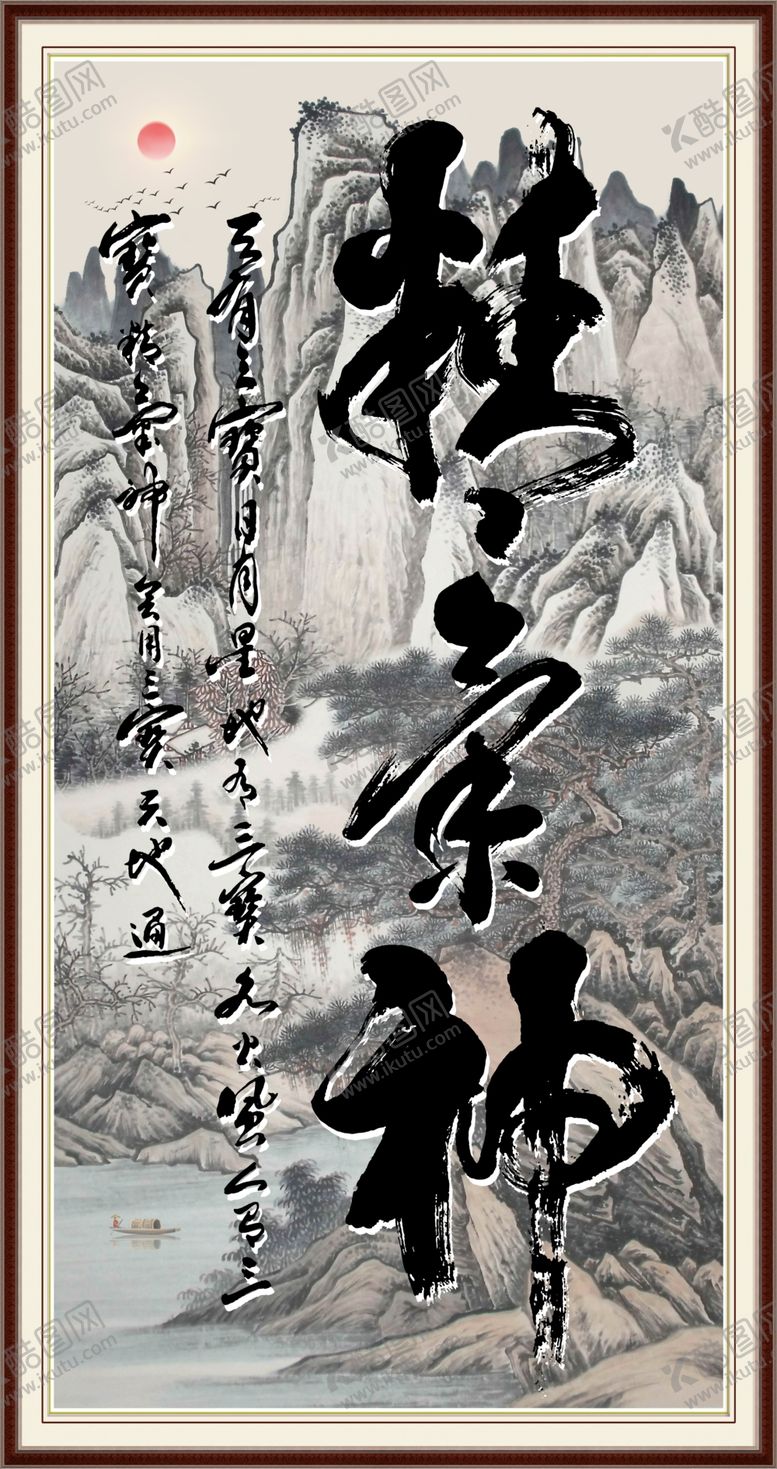 精氣神
天有三寶日月星地有三寶水火風人有三
寶精氣神會用三寶天地通
酷图网
www.ikutu.com